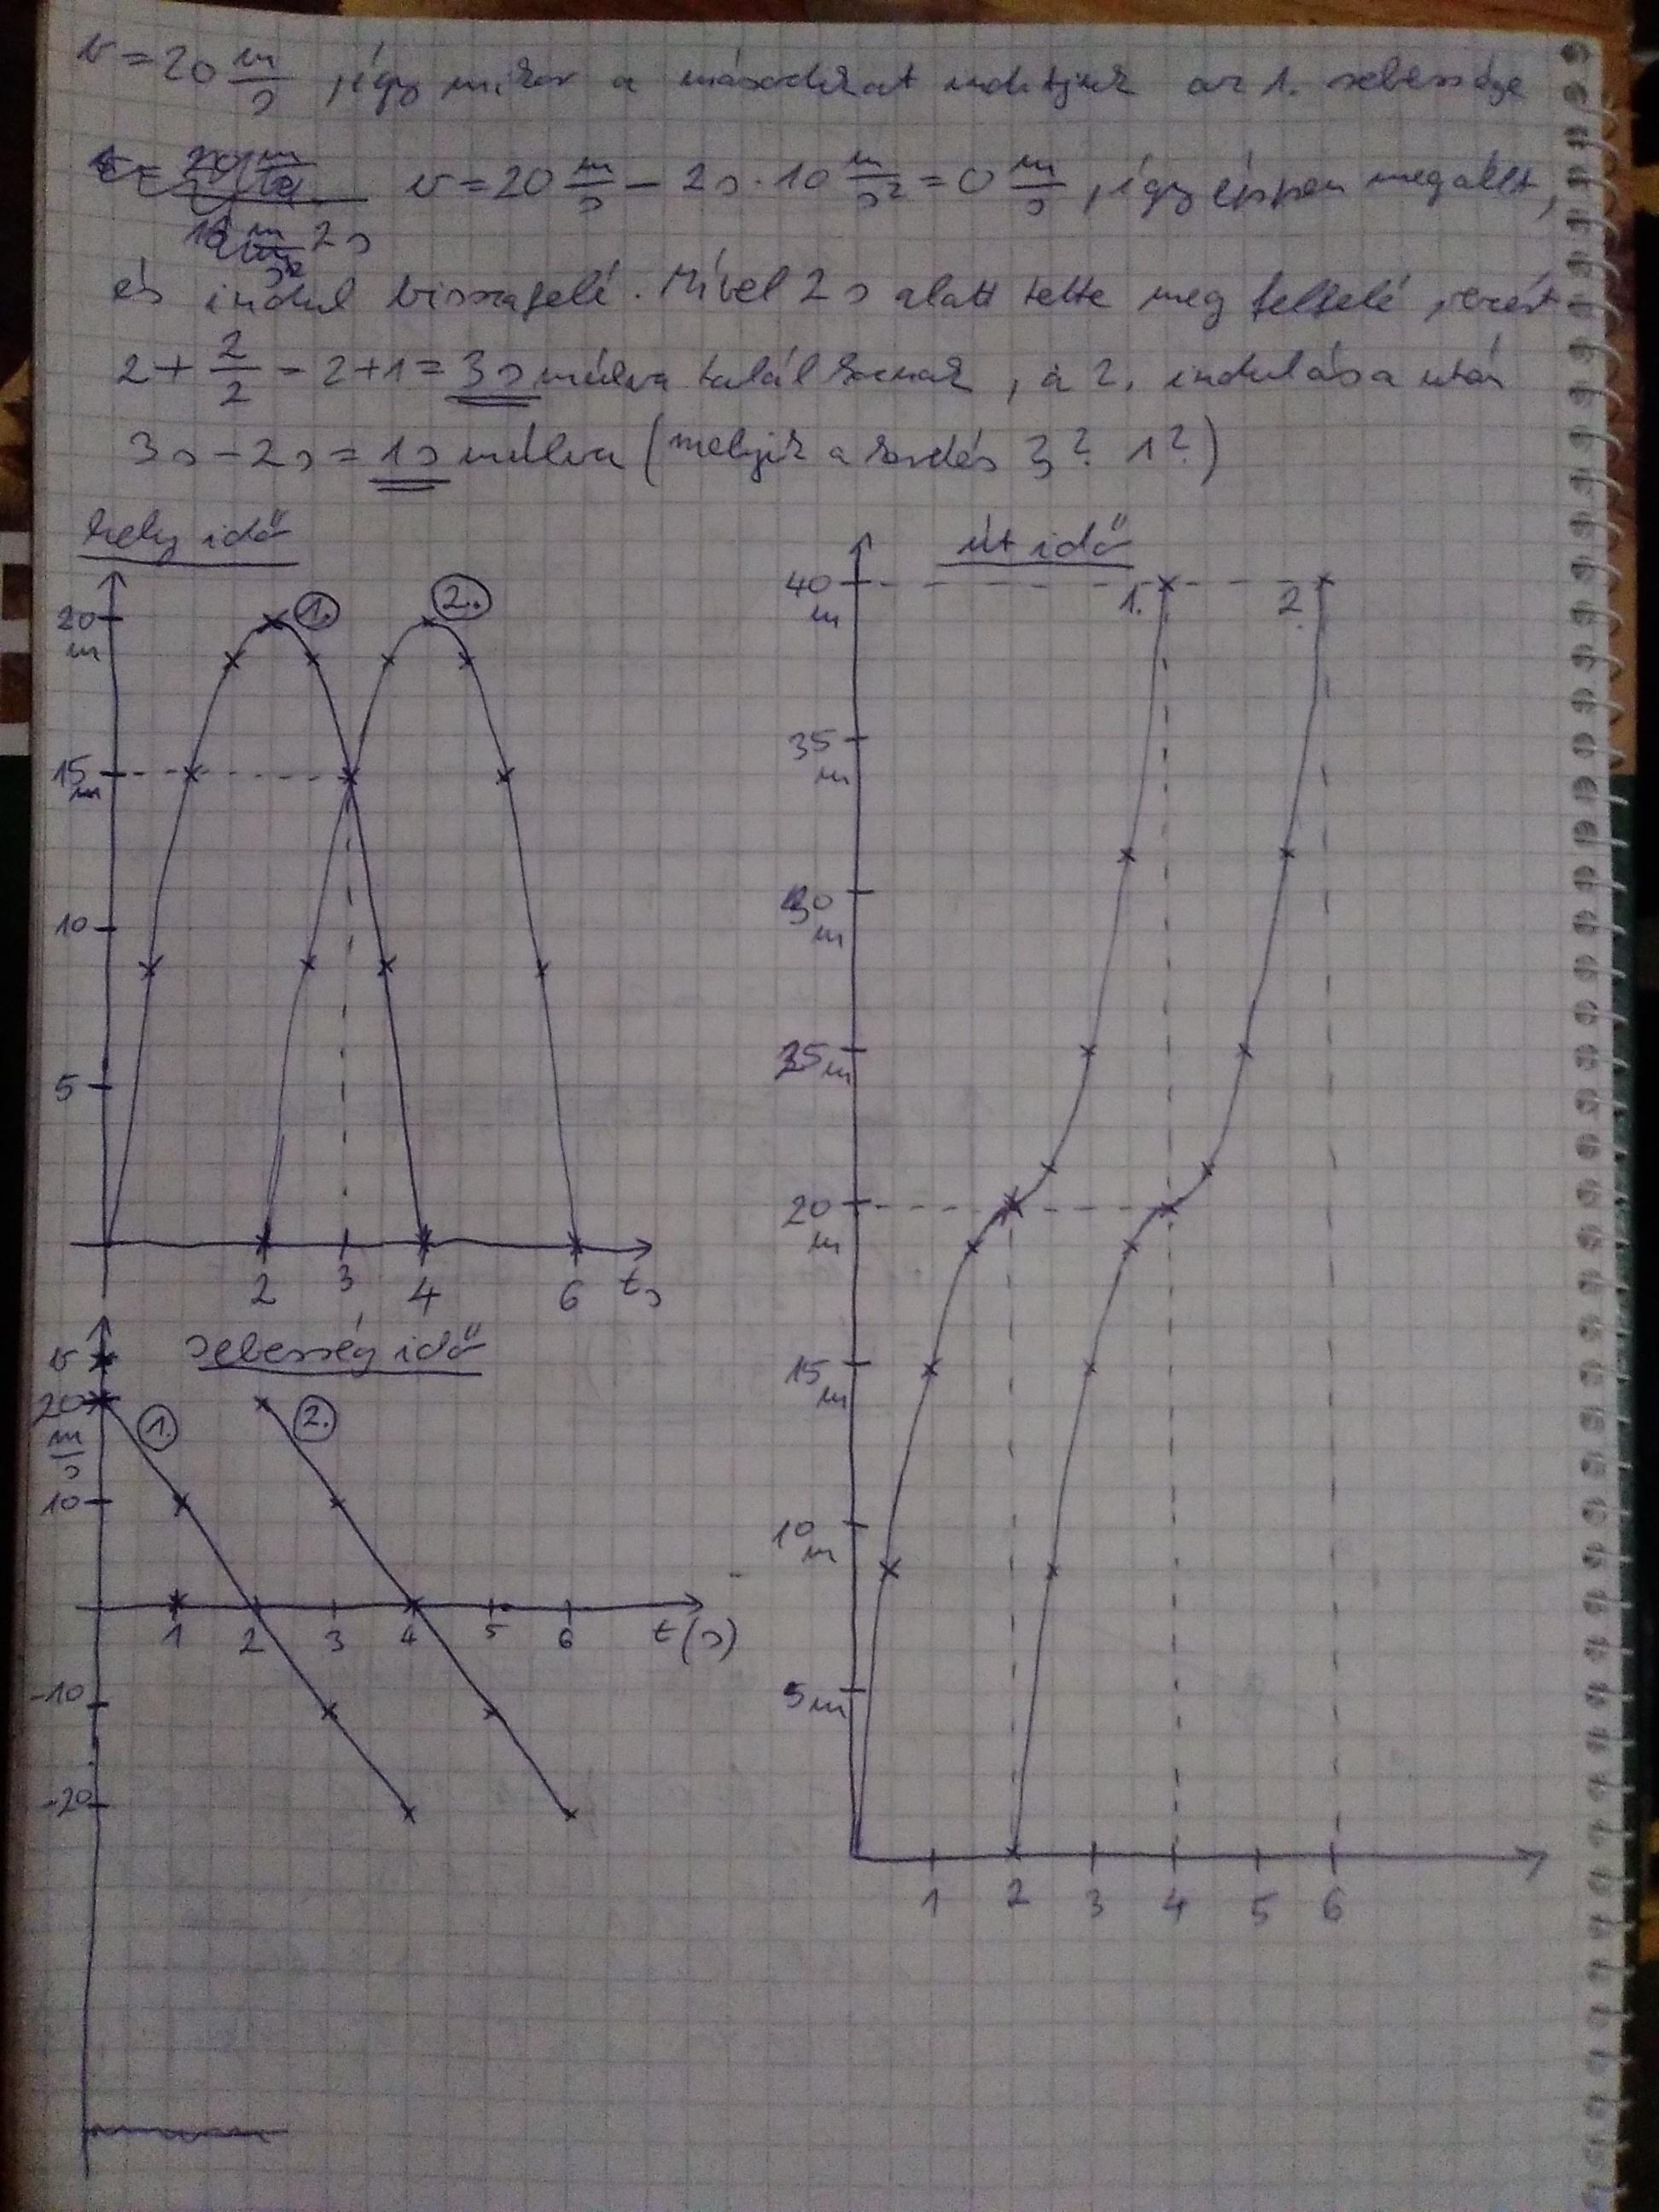 v = 20 m/s , így mikor a másodikat indítjuk az 1. sebessége
v = 20 m/s - 2s · 10 m/s² = 0 m/s , így éppen megállt,
és indul visszafelé. Mivel 2 s alatt tette meg felfelé, ezért
2 + 2/2 = 2+1 = 3s múlva találkoznak, a 2. indulása után
3s - 2s = 1s múlva (melyik a kérdés 3? 1?)
hely idő
20 m
15 m
10
5
1.
2.
2 3 4 6 t s
út idő
40 m
35 m
30 m
25 m
20 m
15 m
10 m
5 m
1.
2.
1 2 3 4 5 6
sebesség idő
v
20 m/s
10
-10
-20
1.
2.
1 2 3 4 5 6 t(s)